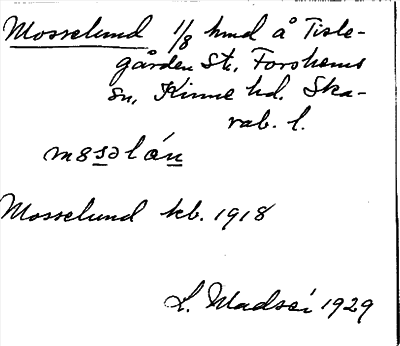 Mosselund 1/8 hmd å Tisle-
gården St., Forshems
sn, Kinne hd. Ska-
rab. l.
Mosselund kb. 1918
L. 1929